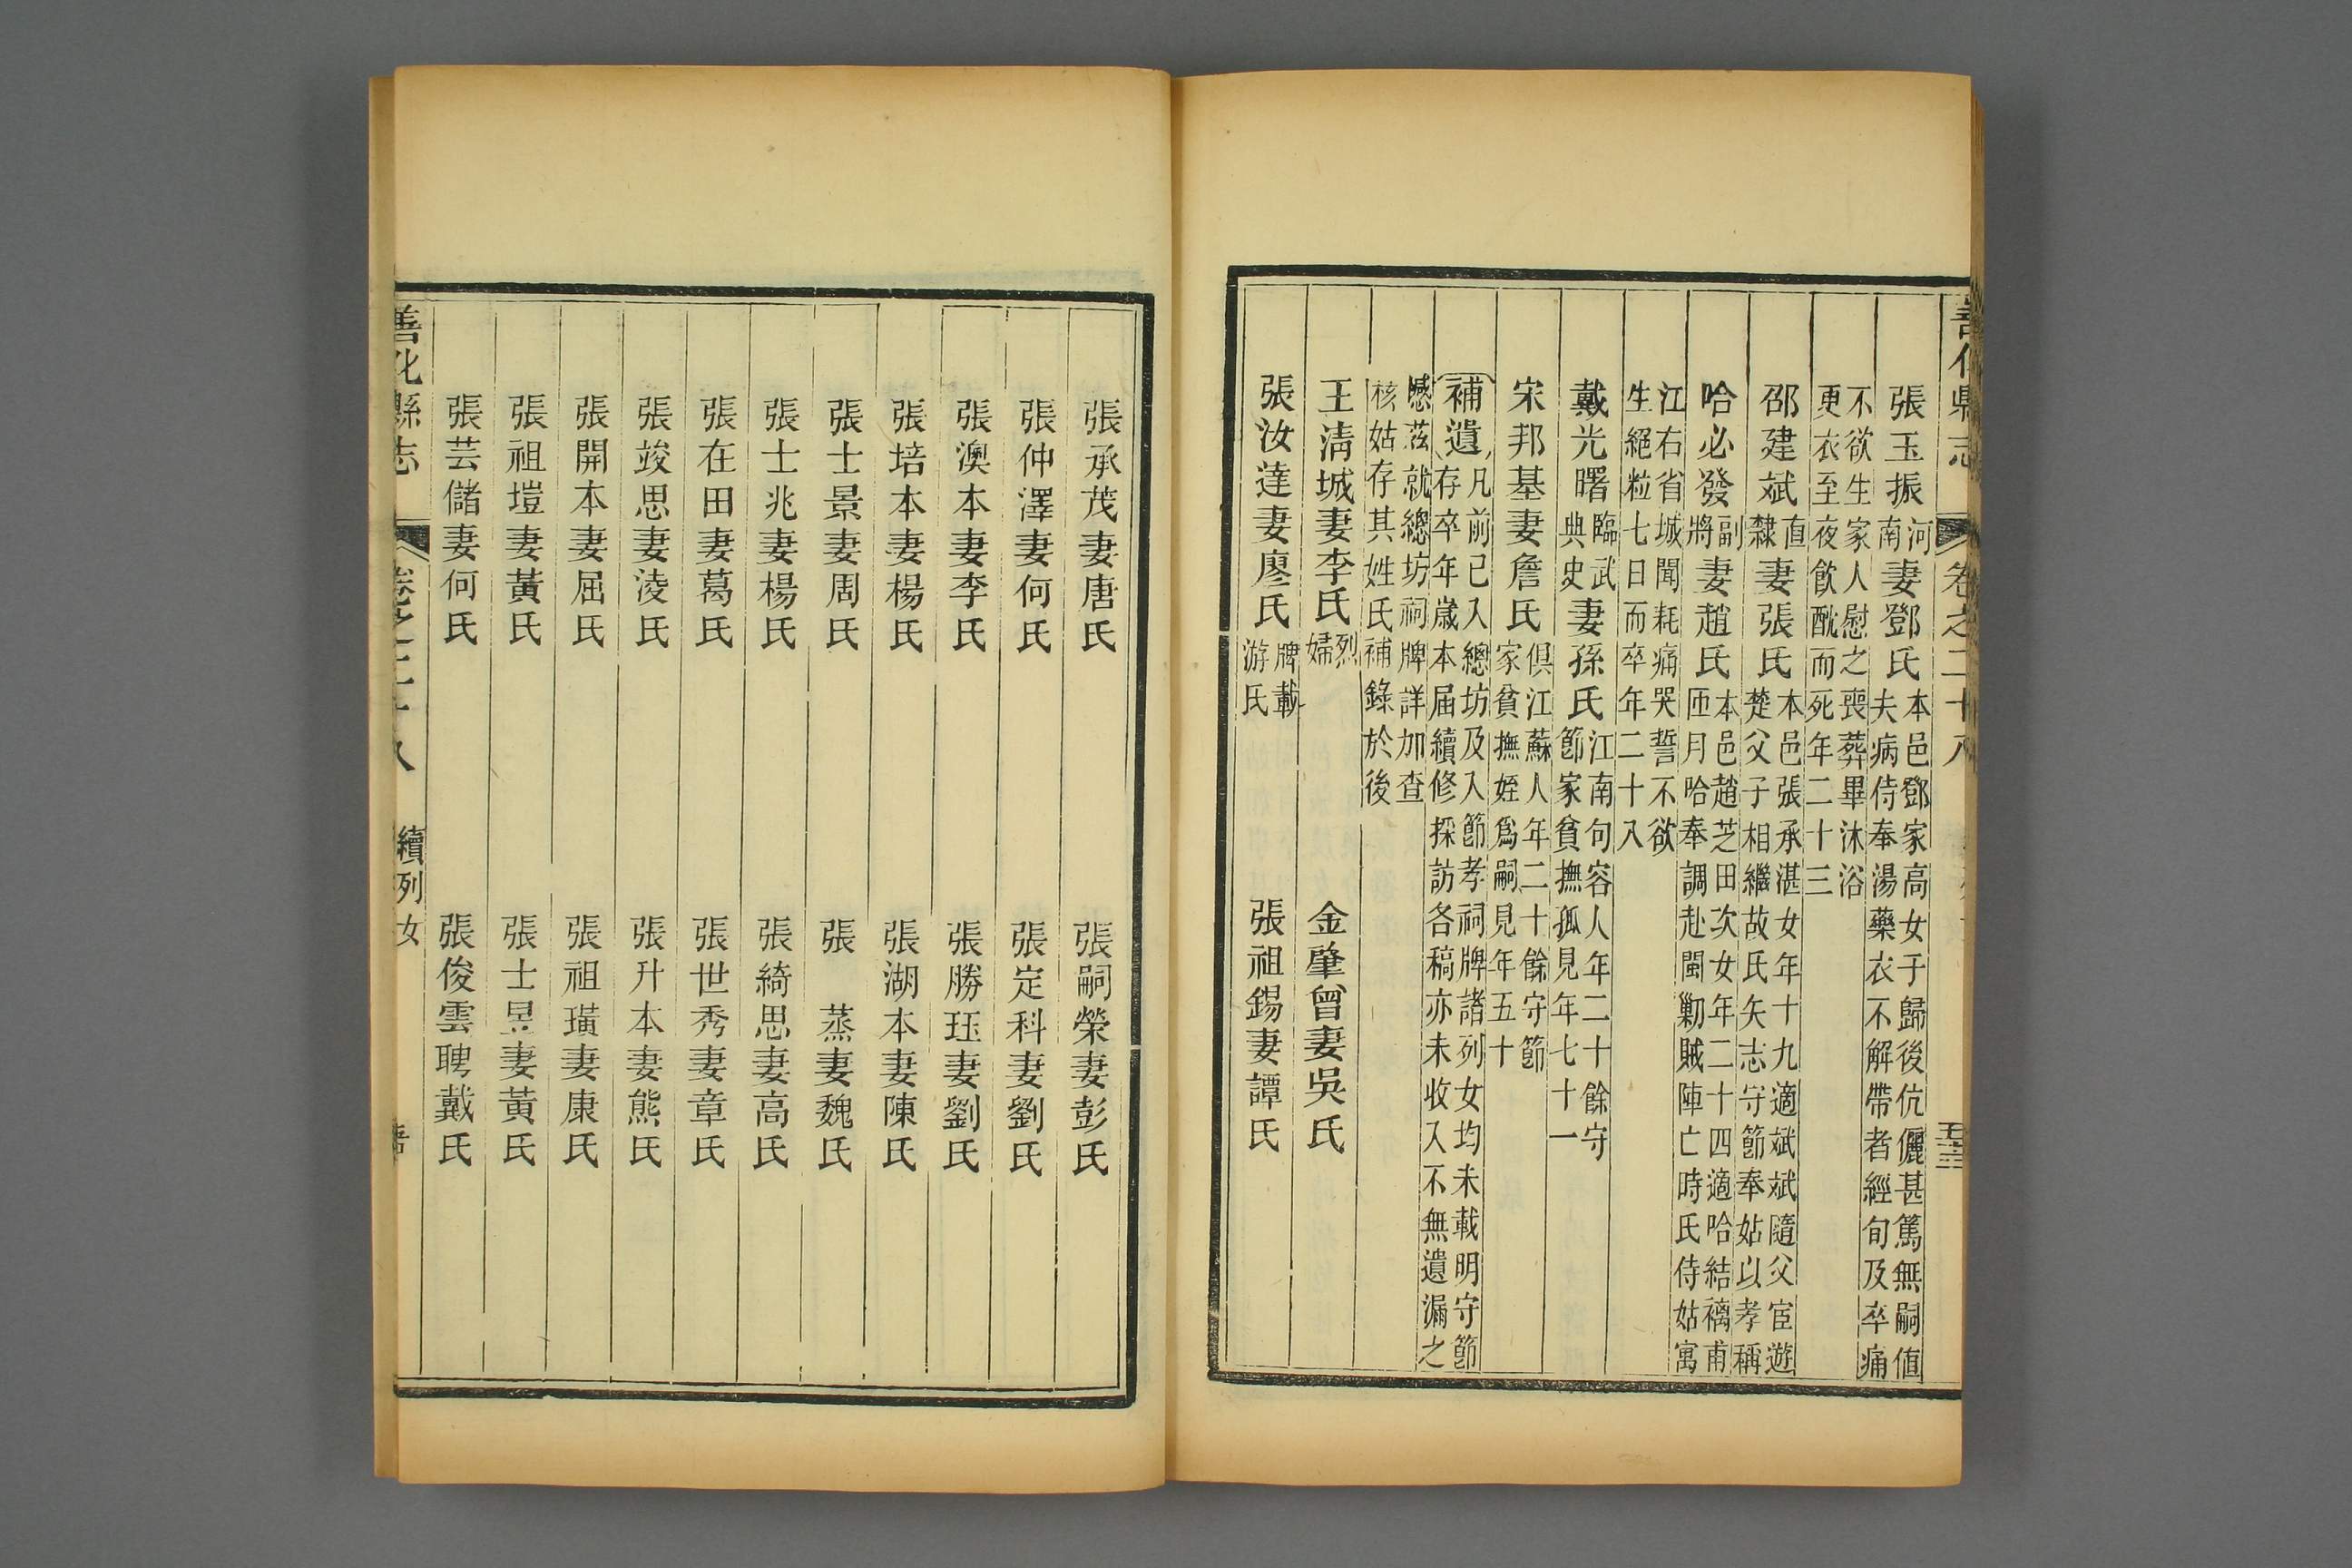 善化縣志 卷之二十八 五十三
張玉振河南妻鄧氏本邑鄧家高女子歸後伉儷甚篤無嗣値夫病侍奉湯藥衣不解帶者經旬及卒痛
不欲生家人慰之喪葬畢沐浴更衣至夜飮酖而死年二十三
邵建斌直隸妻張氏本邑張承湛女年十九適斌斌隨父宦遊楚父子相繼故氏矢志守節奉姑以孝稱
哈必發副將妻趙氏本邑趙芝田次女年二十四適哈結褵甫匝月哈奉調赴閩勦賊陣亡時氏侍姑寓
江右省城聞耗痛哭誓不欲生絕粒七日而卒年二十八
戴光曙臨武典史妻孫氏江南句容人年二十餘守節家貧撫孤見年七十一
宋邦基妻詹氏俱江蘇人年二十餘守節家貧撫姪爲嗣見年五十
補遺凡前已入總坊及入節孝祠牌諸列女均未載明守節存卒年歲本屆續修採訪各稿亦未收入不無遺漏之
憾茲就總坊祠牌詳加查核姑存其姓氏補錄於後
王淸城妻李氏烈婦 金肇曾妻吳氏
張汝達妻廖氏牌載游氏 張祖錫妻譚氏
張承茂妻唐氏 張嗣榮妻彭氏
張仲澤妻何氏 張定科妻劉氏
張澳本妻李氏 張勝珏妻劉氏
張培本妻楊氏 張湖本妻陳氏
張士景妻周氏 張蒸妻魏氏
張士兆妻楊氏 張綺思妻高氏
張在田妻葛氏 張世秀妻章氏
張竣思妻淩氏 張升本妻熊氏
張開本妻屈氏 張祖璜妻康氏
張祖塏妻黃氏 張士昱妻黃氏
張芸儲妻何氏 張俊雲聘戴氏
善化縣志 卷之二十八 續列女